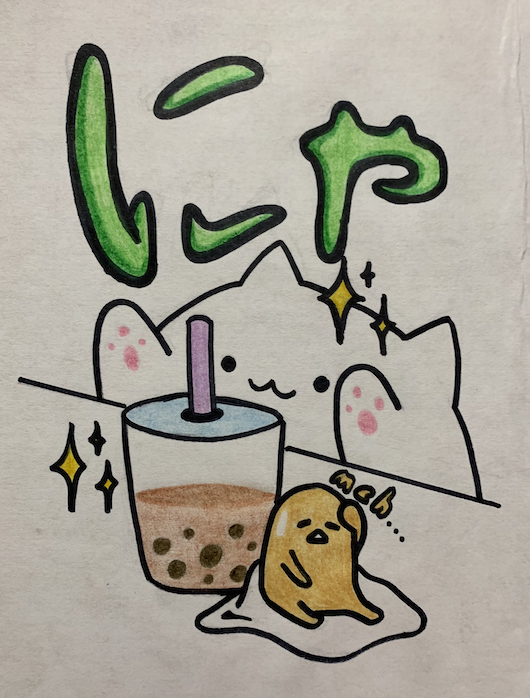 にゃ
meh...